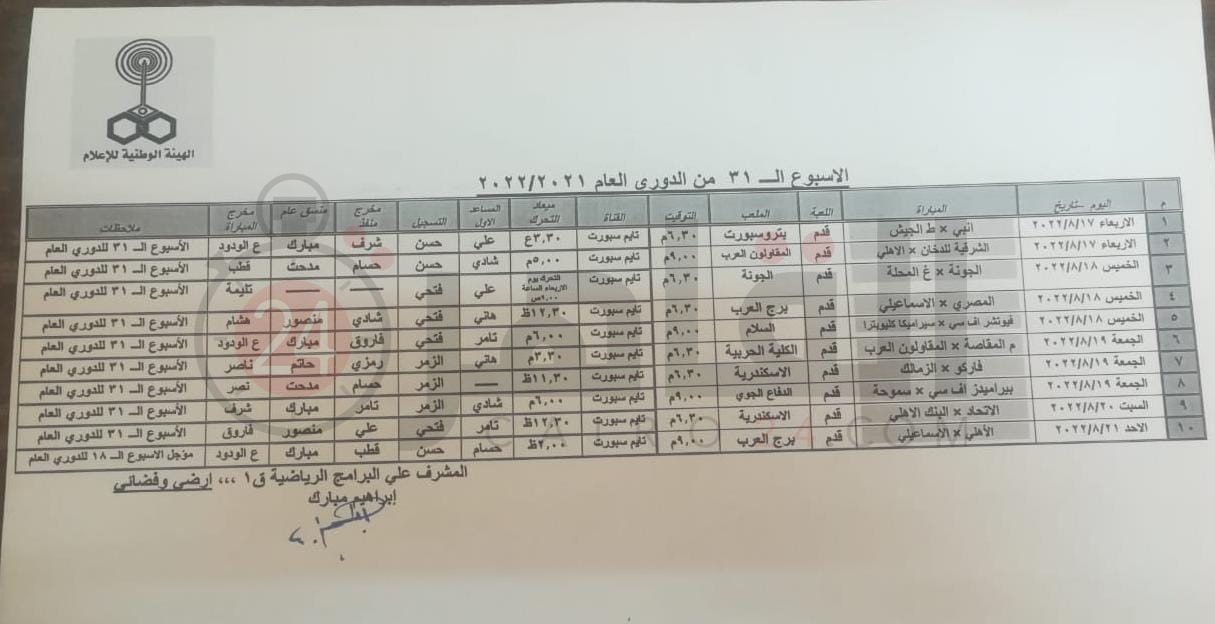 الهيئة الوطنية للإعلام
الاسبوع الـــ ٣١ من الدوري العام ٢٠٢٢/٢٠٢١
م اليوم - تاريخ المباراة اللعبة الملعب التوقيت القناة ميعاد التحرك المساعد الاول التسجيل مخرج منفذ منسق عام مخرج المباراة ملاحظات
١ الاربعاء ٢٠٢٢/٨/١٧ انبي × ط الجيش قدم بتروسبورت ٦,٣٠م تايم سبورت ٣,٣٠ع علي حسن شرف مبارك ع الودود الأسبوع الــ ٣١ للدوري العام
٢ الاربعاء ٢٠٢٢/٨/١٧ الشرقية للدخان × الاهلي قدم المقاولون العرب ٩,٠٠م تايم سبورت ٥,٠٠م شادي حسن حسام مدحت قطب الأسبوع الــ ٣١ للدوري العام
٣ الخميس ٢٠٢٢/٨/١٨ الجونة × غ المحلة قدم الجونة ٦,٣٠م تايم سبورت التحرك يوم الاربعاء الساعة ٩,٠٠ص علي فتحي —— —— تليمة الأسبوع الــ ٣١ للدوري العام
٤ الخميس ٢٠٢٢/٨/١٨ المصري × الاسماعيلي قدم برج العرب ٦,٣٠م تايم سبورت ١٢,٣٠ظ هاني فتحي شادي منصور هشام الأسبوع الــ ٣١ للدوري العام
٥ الخميس ٢٠٢٢/٨/١٨ فيوتشر اف سي × سيراميكا كليوبترا قدم السلام ٩,٠٠م تايم سبورت ٦,٠٠م تامر فتحي فاروق مبارك ع الودود الأسبوع الــ ٣١ للدوري العام
٦ الجمعة ٢٠٢٢/٨/١٩ م المقاصة × المقاولون العرب قدم الكلية الحربية ٦,٣٠م تايم سبورت ٣,٣٠م هاني الزمر رمزي حاتم ناصر الأسبوع الــ ٣١ للدوري العام
٧ الجمعة ٢٠٢٢/٨/١٩ فاركو × الزمالك قدم الاسكندرية ٦,٣٠م تايم سبورت ١١,٣٠ظ —— الزمر حسام مدحت نصر الأسبوع الــ ٣١ للدوري العام
٨ الجمعة ٢٠٢٢/٨/١٩ بيراميدز اف سي × سموحة قدم الدفاع الجوي ٩,٠٠م تايم سبورت ٦,٠٠م شادي الزمر تامر مبارك شرف الأسبوع الــ ٣١ للدوري العام
٩ السبت ٢٠٢٢/٨/٢٠ الاتحاد × البنك الاهلي قدم الاسكندرية ٦,٣٠م تايم سبورت ١٢,٣٠ظ تامر فتحي علي منصور فاروق الأسبوع الــ ٣١ للدوري العام
١٠ الاحد ٢٠٢٢/٨/٢١ الأهلي × الأسماعيلي قدم برج العرب ٩,٠٠م تايم سبورت ٢,٠٠ظ حسام حسن قطب مبارك ع الودود مؤجل الاسبوع الــ ١٨ للدوري العام
المشرف علي البرامج الرياضية ق١ ,,, ارضي وفضائي
إبراهيم مبارك
24
CAIRO 24.COM